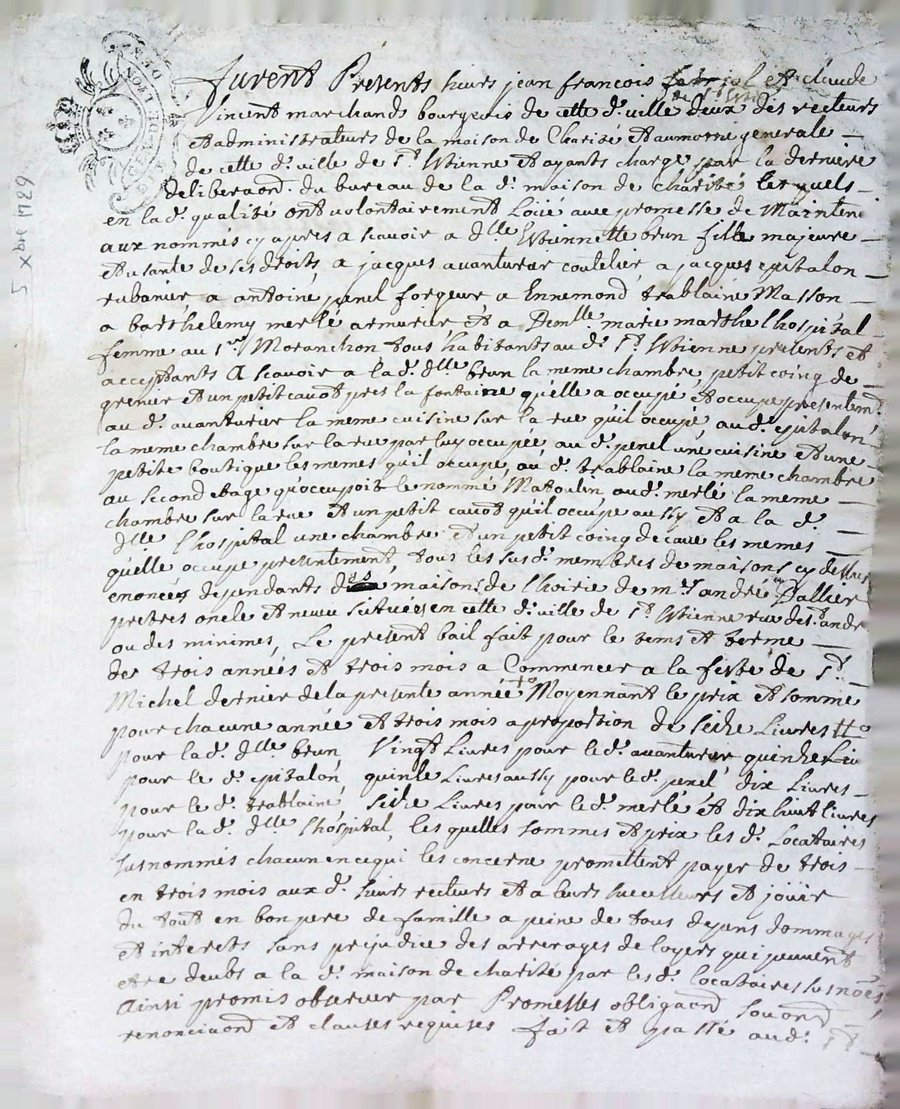 GEN DE LYON
5 xbre 1729
furent Presents sieurs jean francois et claude
Vincent marchands bourgeois de cette d. ville deux des recteurs
et administrateurs de la maison de Charité et aumosne generale
de cette d. ville de St. Etienne et ayants charge par la derniere
deliberaon. du bureau de la d. maison de charité lesquels
en la d. qualité ont volontairement Loüé avec promesse de Maintenir
aux nommés cy apres a scavoir a dlle Estiennette brun fille majeure
et usante de ses droits, a jacques avanturier coutelier, a jacques epitalon
rubanier a antoine penel forgeur a Ennemond trablaine Masson
a barthelemy merlé armurier et a Demlle. marie marthe l'hospital
femme au sr. Moranchon tous habitants au d. St. Etienne presents et
acceptants A scavoir a la d. dlle brun la meme chambre, petit coing de
grenier et un petit cavot pres la fontaine qu'elle a occupé, et occupe presentemt.
au d. avanturier la meme cuisine sur la rue qu'il occupe, au d. epitalon
la meme chambre sur la rue par luy occupée au d. penel une cuisine et une
petite boutique les memes qu'il occupe, au d. trablaine la meme chambre
au second etage qu'occupoit le nommé Matoulin, au d. merlé la meme
chambre sur la rue et un petit cavot qu'il occupe aussy et a la d.
dlle l'hospital une chambre et un petit coing de cave les memes
qu'elle occupe presentement, tous les susd. membres de maisons cy dessus
enoncés dependants des maisons de l'hoirie de mrs. andré Dallier
pretres oncle et neveu scituées en cette d. ville de St. Etienne rue de st. andre
ou des minimes, Le present bail fait pour le tems et terme
de trois années et trois mois a Commencer a la feste de St.
Michel dernier de la presente année Moyennant le prix et somme
pour chacune année et trois mois a proportion de seize Livres
pour la d. dlle brun, Vingt Livres pour le d. avanturier quinze Liv
pour le d. epitalon, quinze Livres aussy pour le d. penel, dix Livres
pour le d. trablaine, seize Livres pour le d. merlé et dix huit livres
pour la d. dlle l'hospital, les quelles sommes et prix les d. Locataires
susnommés chacun en ce qui les concerne promettent payer de trois
en trois mois aux d. sieurs recteurs et a leurs successeurs et joüir
du tout en bon pere de famille a peine de tous depens dommages
et interets sans prejudice des arrerages de loyers qui peuvent
etre deubs a la d. maison de charité par les d. locataires susnoés
Ainsi promis observer par Promesses obligaons soumons
renonciaons et clauses requises fait et passé au d. St.